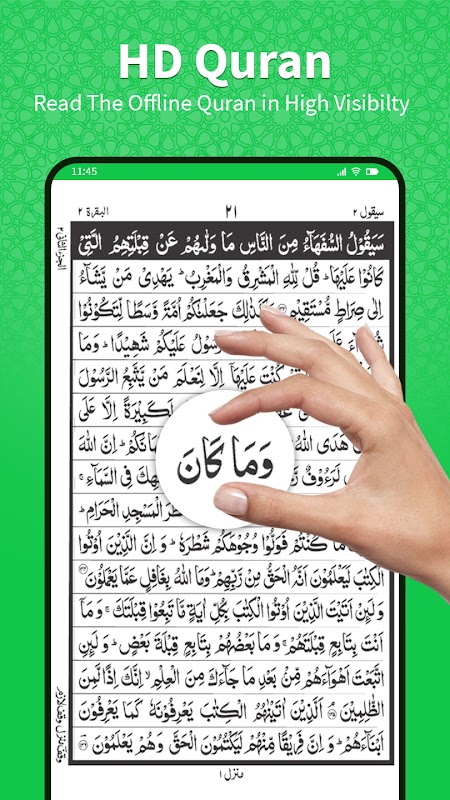 HD Quran
Read The Offline Quran in High Visibilty
11:45
البقرة ٢
٢١
سيقول ٢
سَيَقُوْلُ السُّفَهَآءُ مِنَ النَّاسِ مَا وَلّٰىهُمْ عَنْ قِبْلَتِهِمُ الَّتِيْ
كَانُوْا عَلَيْهَا ؕ قُلْ لِّلّٰهِ الْمَشْرِقُ وَالْمَغْرِبُ ؕ يَهْدِيْ مَنْ يَّشَآءُ
اِلٰى صِرَاطٍ مُّسْتَقِيْمٍ وَكَذٰلِكَ جَعَلْنٰكُمْ اُمَّةً وَّسَطًا لِّتَكُوْنُوْا
سُوْلُ عَلَيْكُمْ شَهِيْدًا ؕ وَمَا
كُنْتَ عَلَيْهَآ اِلَّا لِنَعْلَمَ مَنْ يَّتَّبِعُ الرَّسُوْلَ
لَكَبِيْرَةً اِلَّا عَلَى
هَدَى اللّٰهُ ؕ وَمَا كَانَ اِنَّ اللّٰهَ
لَرَءُوْفٌ فِي السَّمَآءِ ۚ
الْمَسْجِدِ الْحَرَامِ ؕ
مَا كُنْتُمْ فَوَلُّوْا وُجُوْهَكُمْ شَطْرَهٗ ؕ وَاِنَّ الَّذِيْنَ اُوْتُوا
الْكِتٰبَ لَيَعْلَمُوْنَ اَنَّهُ الْحَقُّ مِنْ رَّبِّهِمْ ؕ وَمَا اللّٰهُ بِغَافِلٍ عَمَّا يَعْمَلُوْنَ
وَلَئِنْ اَتَيْتَ الَّذِيْنَ اُوْتُوا الْكِتٰبَ بِكُلِّ اٰيَةٍ مَّا تَبِعُوْا قِبْلَتَكَ ۚ وَمَآ
اَنْتَ بِتَابِعٍ قِبْلَتَهُمْ ۚ وَمَا بَعْضُهُمْ بِتَابِعٍ قِبْلَةَ بَعْضٍ ؕ وَلَئِنِ
اتَّبَعْتَ اَهْوَآءَهُمْ مِّنْۢ بَعْدِ مَا جَآءَكَ مِنَ الْعِلْمِ ۙ اِنَّكَ اِذًا لَّمِنَ
الظّٰلِمِيْنَ اَلَّذِيْنَ اٰتَيْنٰهُمُ الْكِتٰبَ يَعْرِفُوْنَهٗ كَمَا يَعْرِفُوْنَ
اَبْنَآءَهُمْ ؕ وَاِنَّ فَرِيْقًا مِّنْهُمْ لَيَكْتُمُوْنَ الْحَقَّ وَهُمْ يَعْلَمُوْنَ
منزل ١